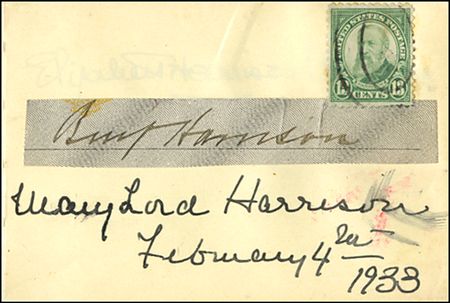 UNITED STATES POSTAGE
13 CENTS 13
Benj Harrison
Mary Lord Harrison
February 4th
1933